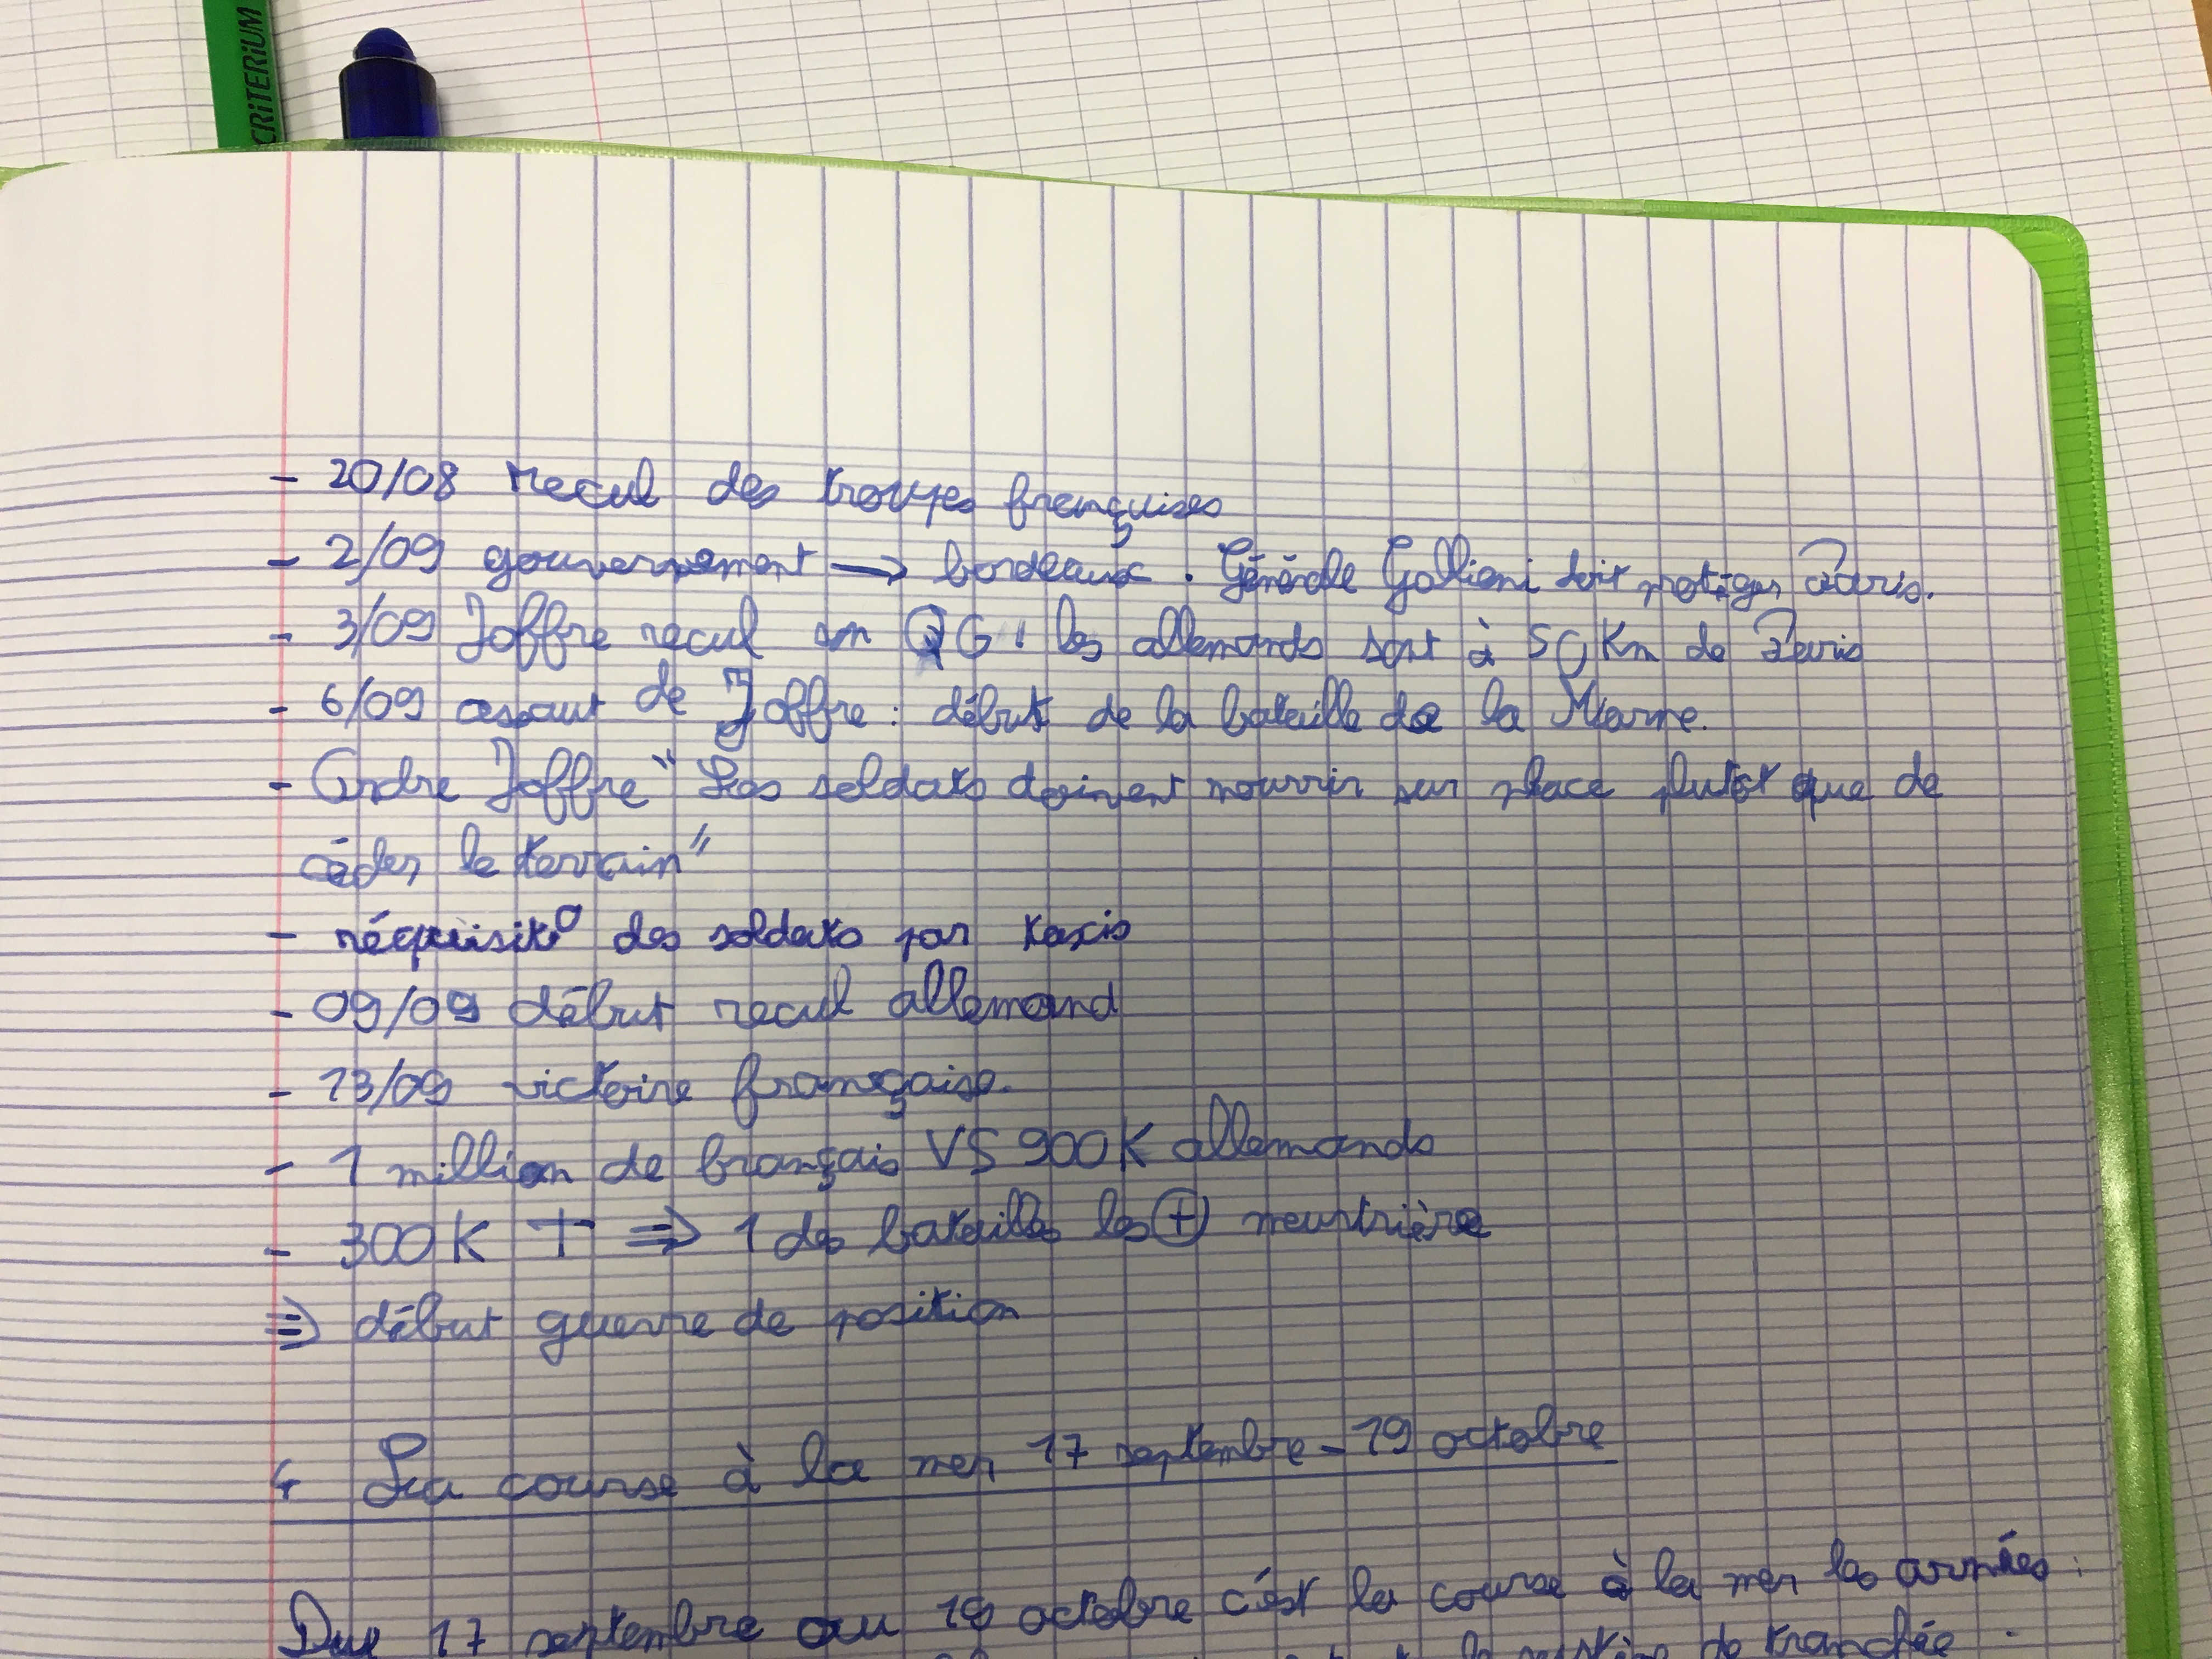 CRiTERiUM
- 20/08 recul des troupes françaises
- 2/09 gouvernement → bordeaux. Générale Gallieni doit protéger Paris.
- 3/09 Joffre recul son QG : les allemands sont à 50 Km de Paris
- 6/09 assaut de Joffre : début de la bataille de la Marne.
- Ordre Joffre " Les soldats doivent mourrir sur place plutôt que de
céder le terrain"
- réquisit° des soldats par taxis
- 09/09 début recul allemand
- 13/09 victoire française.
- 1 million de français VS 900K allemands
- 300K † ⇒ 1 des batailles les ⊕ meurtrière
⇒ début guerre de position
4 La course à la mer 17 septembre - 19 octobre
Du 17 septembre au 19 octobre c'est la course à la mer les armées
de tranchée